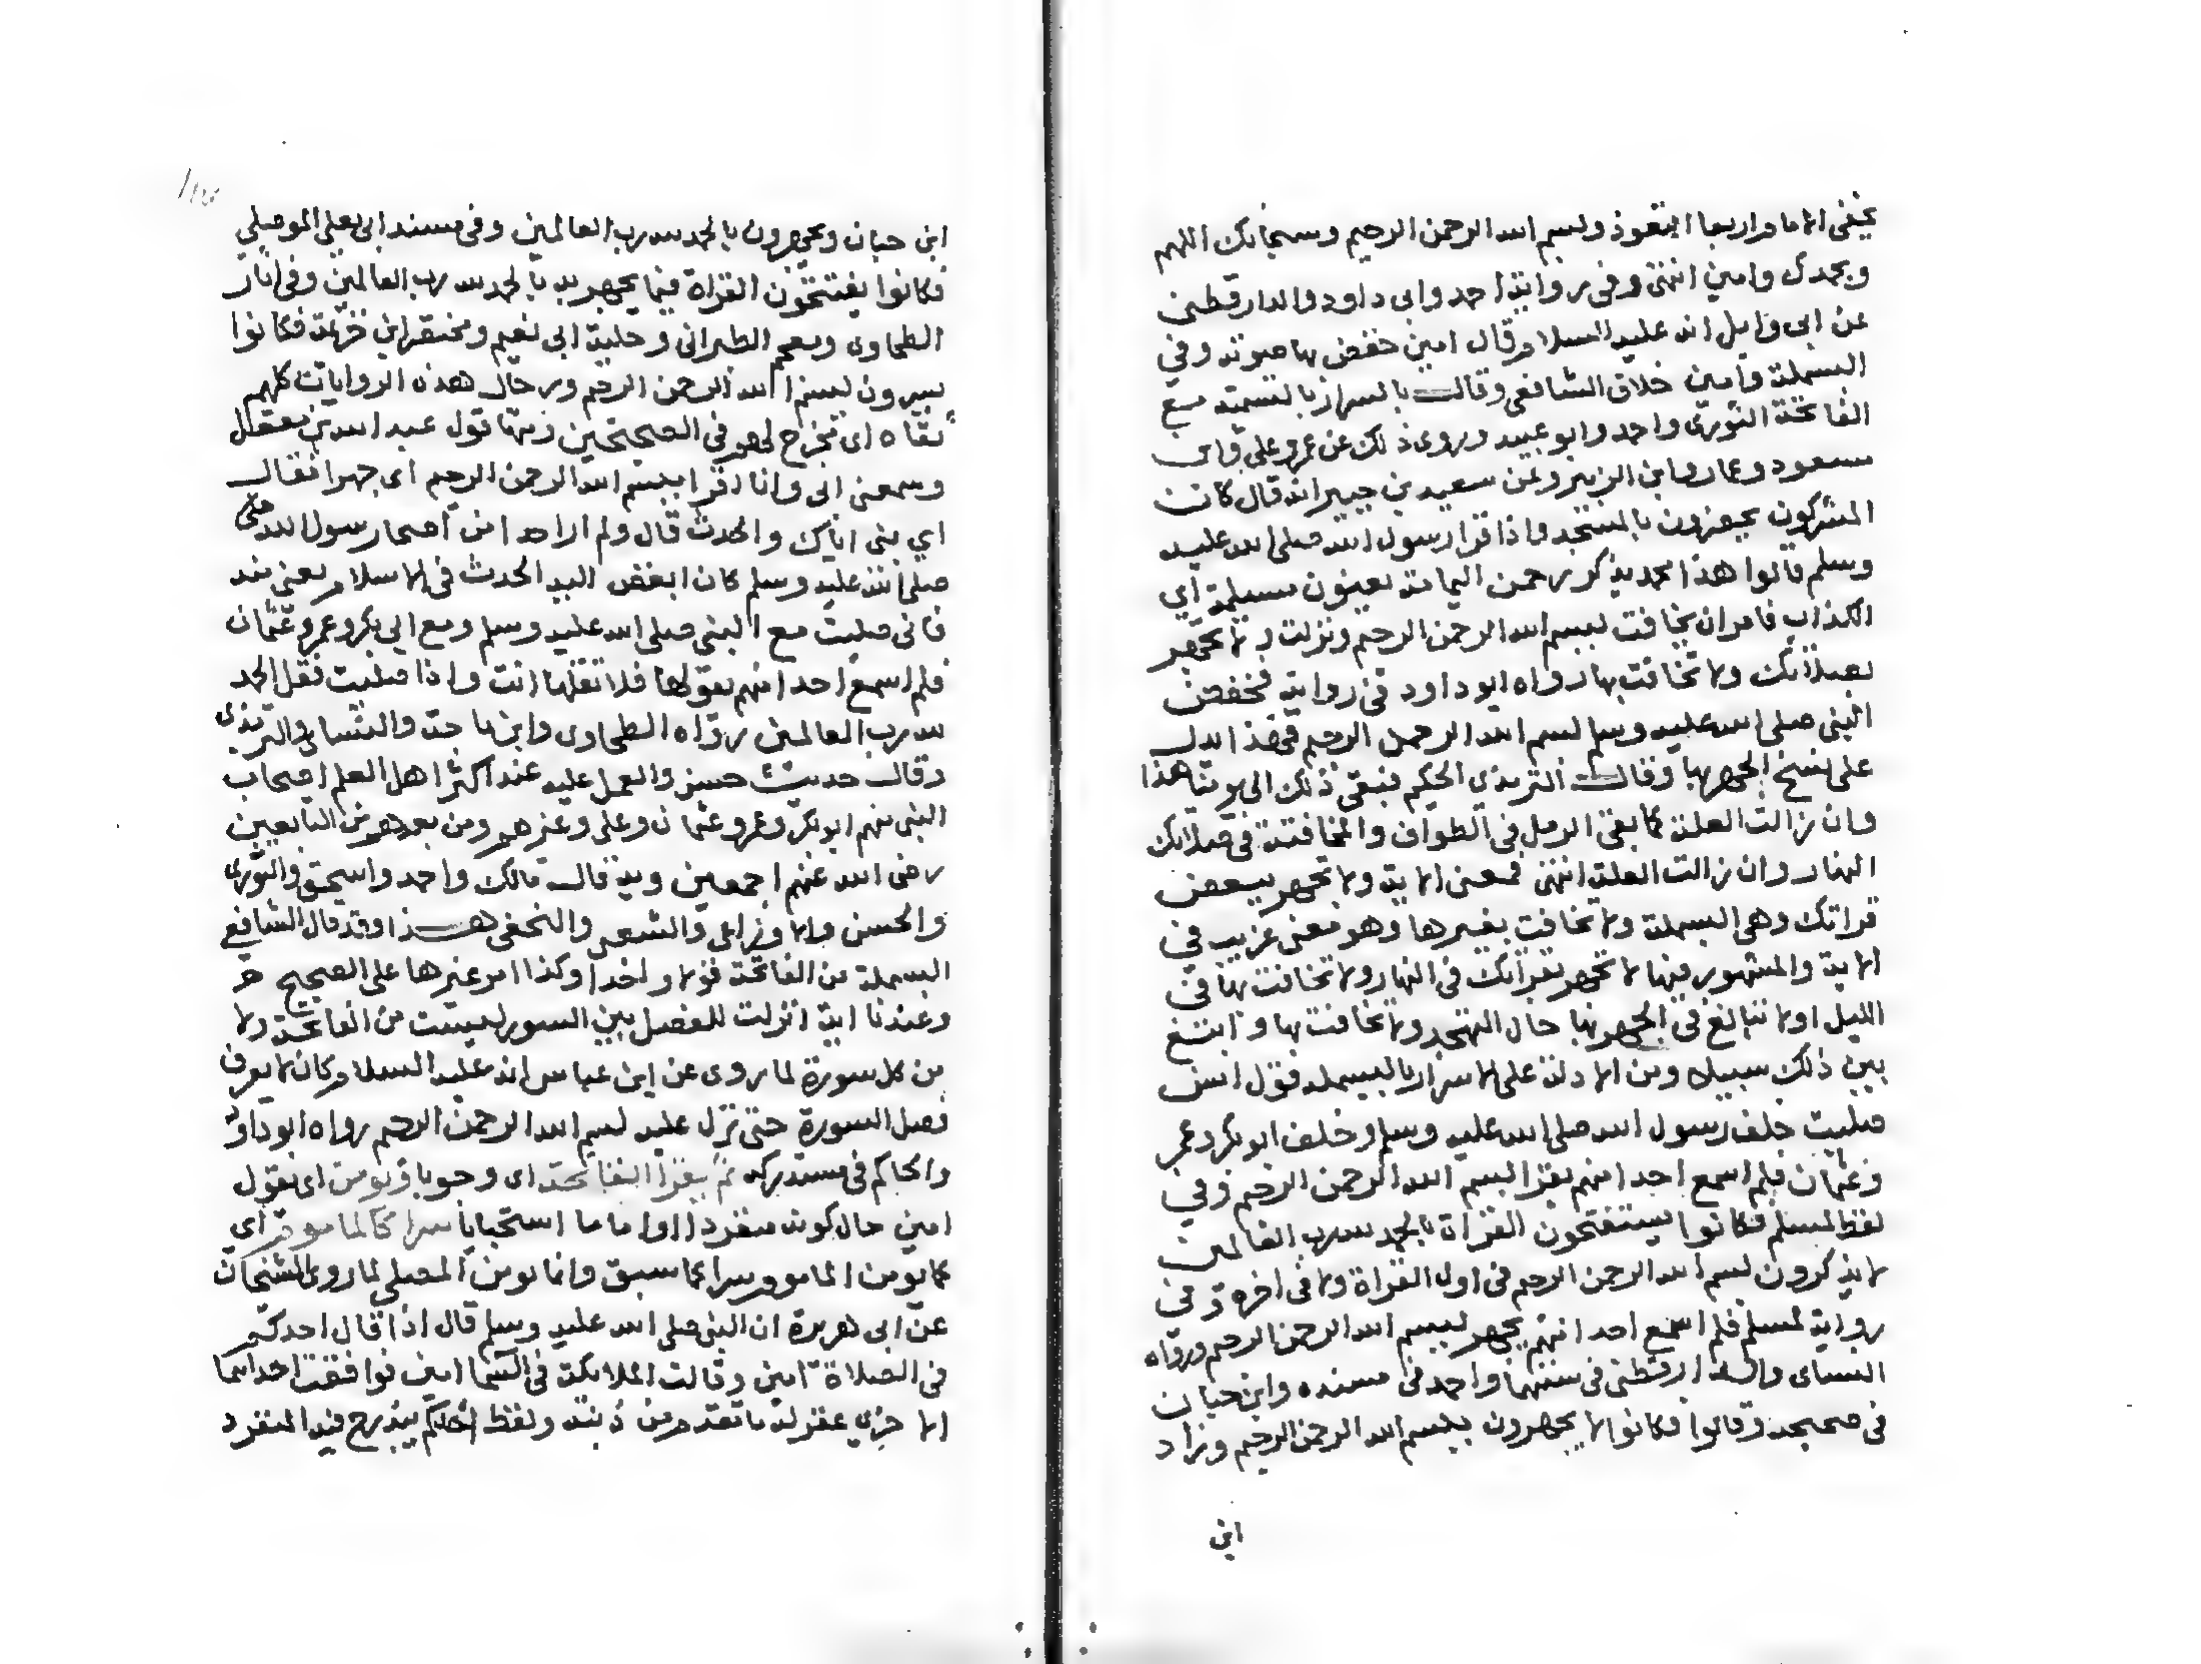 يخفي الامام اربعا التعوذ وبسم الله الرحمن الرحيم وسبحانك اللهم
وبحمدك وامين انتهى وفى رواية احمد وابى داود والدارقطنى
عن ابى وايل انه عليه السلام قال امين خفض بها صوته وفي
البسملة وآمين خلاف الشافعى وقال بالاسرار بالتسمية مع
الفاتحة الثورى واحمد وابو عبيد وروى ذلك عن عمر وعلى وابن
مسعود وعمار وابن الزبير وعن سعيد بن جبير انه قال كانت
المشركون يحضرون بالمسجد واذا قرا رسول الله صلى الله عليه
وسلم قالوا هذا محمد يذكر رحمن اليمامة يعنون مسيلمة اي
الكذاب فامر ان يخافت ببسم الله الرحمن الرحيم ونزلت ولا تجهر
بصلاتك ولا تخافت بها رواه ابو داود فى رواية فخفض
النبى صلى الله عليه وسلم بسم الله الرحمن الرحيم فهذا يدل
على نسخ الجهر بها وقال الترمذى الحكيم فبقى ذلك الى يومنا هذا
وان زالت العلة كما بقى الرمل فى الطواف والمخافتة فى صلاتك
النهار وان زالت العلة انتهى فمعنى الاية ولا تجهر ببعض
قراتك وهى البسملة ولا تخافت بغيرها وهو معنى غريب فى
الاية والمشهور فيها لا تجهر بقراتك فى النهار ولا تخافت بها فى
الليل او لا تبالغ فى الجهر بها حال التهجد ولا تخافت بها وابتغ
بين ذلك سبيلا ومن الادلة على الاسرار بالبسملة قول انس
صليت خلف رسول الله صلى الله عليه وسلم وخلف ابو بكر وعمر
وعثمان فلم اسمع احدا منهم يقرا بسم الله الرحمن الرحيم وفي
لفظ لمسلم فكانوا يستفتحون القراة بالحمد لله رب العالمين
لا يذكرون بسم الله الرحمن الرحيم فى اول القراة ولا فى اخره وفى
رواية لمسلم فلم اسمع احدا منهم يجهر ببسم الله الرحمن الرحيم ورواه
النساى والدارقطنى فى سننهما واحمد فى مسنده وابن حبان
فى صحيحه وقالوا فكانوا لا يجهرون ببسم الله الرحمن الرحيم وزاد
ابن
ابن حبان ويجهرون بالحمد لله رب العالمين وفى مسند ابى يعلى الموصلي
فكانوا يفتتحون القراة فيما يجهر به بالحمد لله رب العالمين وفى اثار
الطحاوى ومعجم الطبرانى وحلية ابى نعيم ومختصر ابن خزيمة فكانوا
يسرون ببسم الله الرحمن الرحيم ورجال هذه الروايات كلهم
ثقاه اى مخرج لهم فى الصحيحين ومنها قول عبد الله بن مغفل
وسمعنى ابى وانا اقرا ببسم الله الرحمن الرحيم اى جهرا فقال
اي بنى اياك والحدث قال ولم ار احدا من اصحاب رسول الله صلى
صلى الله عليه وسلم كان ابغض اليه الحدث فى الاسلام يعنى منه
فانى صليت مع النبى صلى الله عليه وسلم ومع ابي بكر وعمر وعثمان
فلم اسمع احدا منهم يقولها فلا تقلها انت واذا صليت فقل الحمد
لله رب العالمين رواه الطحاوى وابن ماجة والنساى والترمذى
وقال حديث حسن والعمل عليه عند اكثر اهل العلم اصحاب
النبى منهم ابو بكر وعمر وعثمان وعلى وغيرهم ومن بعدهم من التابعين
رضى الله عنهم اجمعين وبه قال مالك واحمد واسحق والثورى
والحسن والاوزاعى والشعبى والنخعى هذا وقد قال الشافعي
البسملة من الفاتحة قولا واحدا وكذا من غيرها على الصحيح
وعندنا اية انزلت للفصل بين السور ليست من الفاتحة ولا
من كل سورة لما روى عن ابن عباس انه عليه السلام كان لا يعرف
فصل السورة حتى تنزل عليه بسم الله الرحمن الرحيم رواه ابو داود
والحاكم فى مستدركه ثم يقرا الفاتحة اى وجوبا ويومن اى يقول
امين حال كونه منفردا او اماما استحبابا سرا كالماموم اي
كما يومن الماموم سرا كما سبق وانما يومن المصلي لما روى الشيخان
عن ابى هريرة ان النبى صلى الله عليه وسلم قال اذا قال احدكم
فى الصلاة امين وقالت الملائكة فى السما امين فوافقت احداهما
الاخرى غفر له ما تقدم من ذنبه ولفظ احدكم يندرج فيه المنفرد